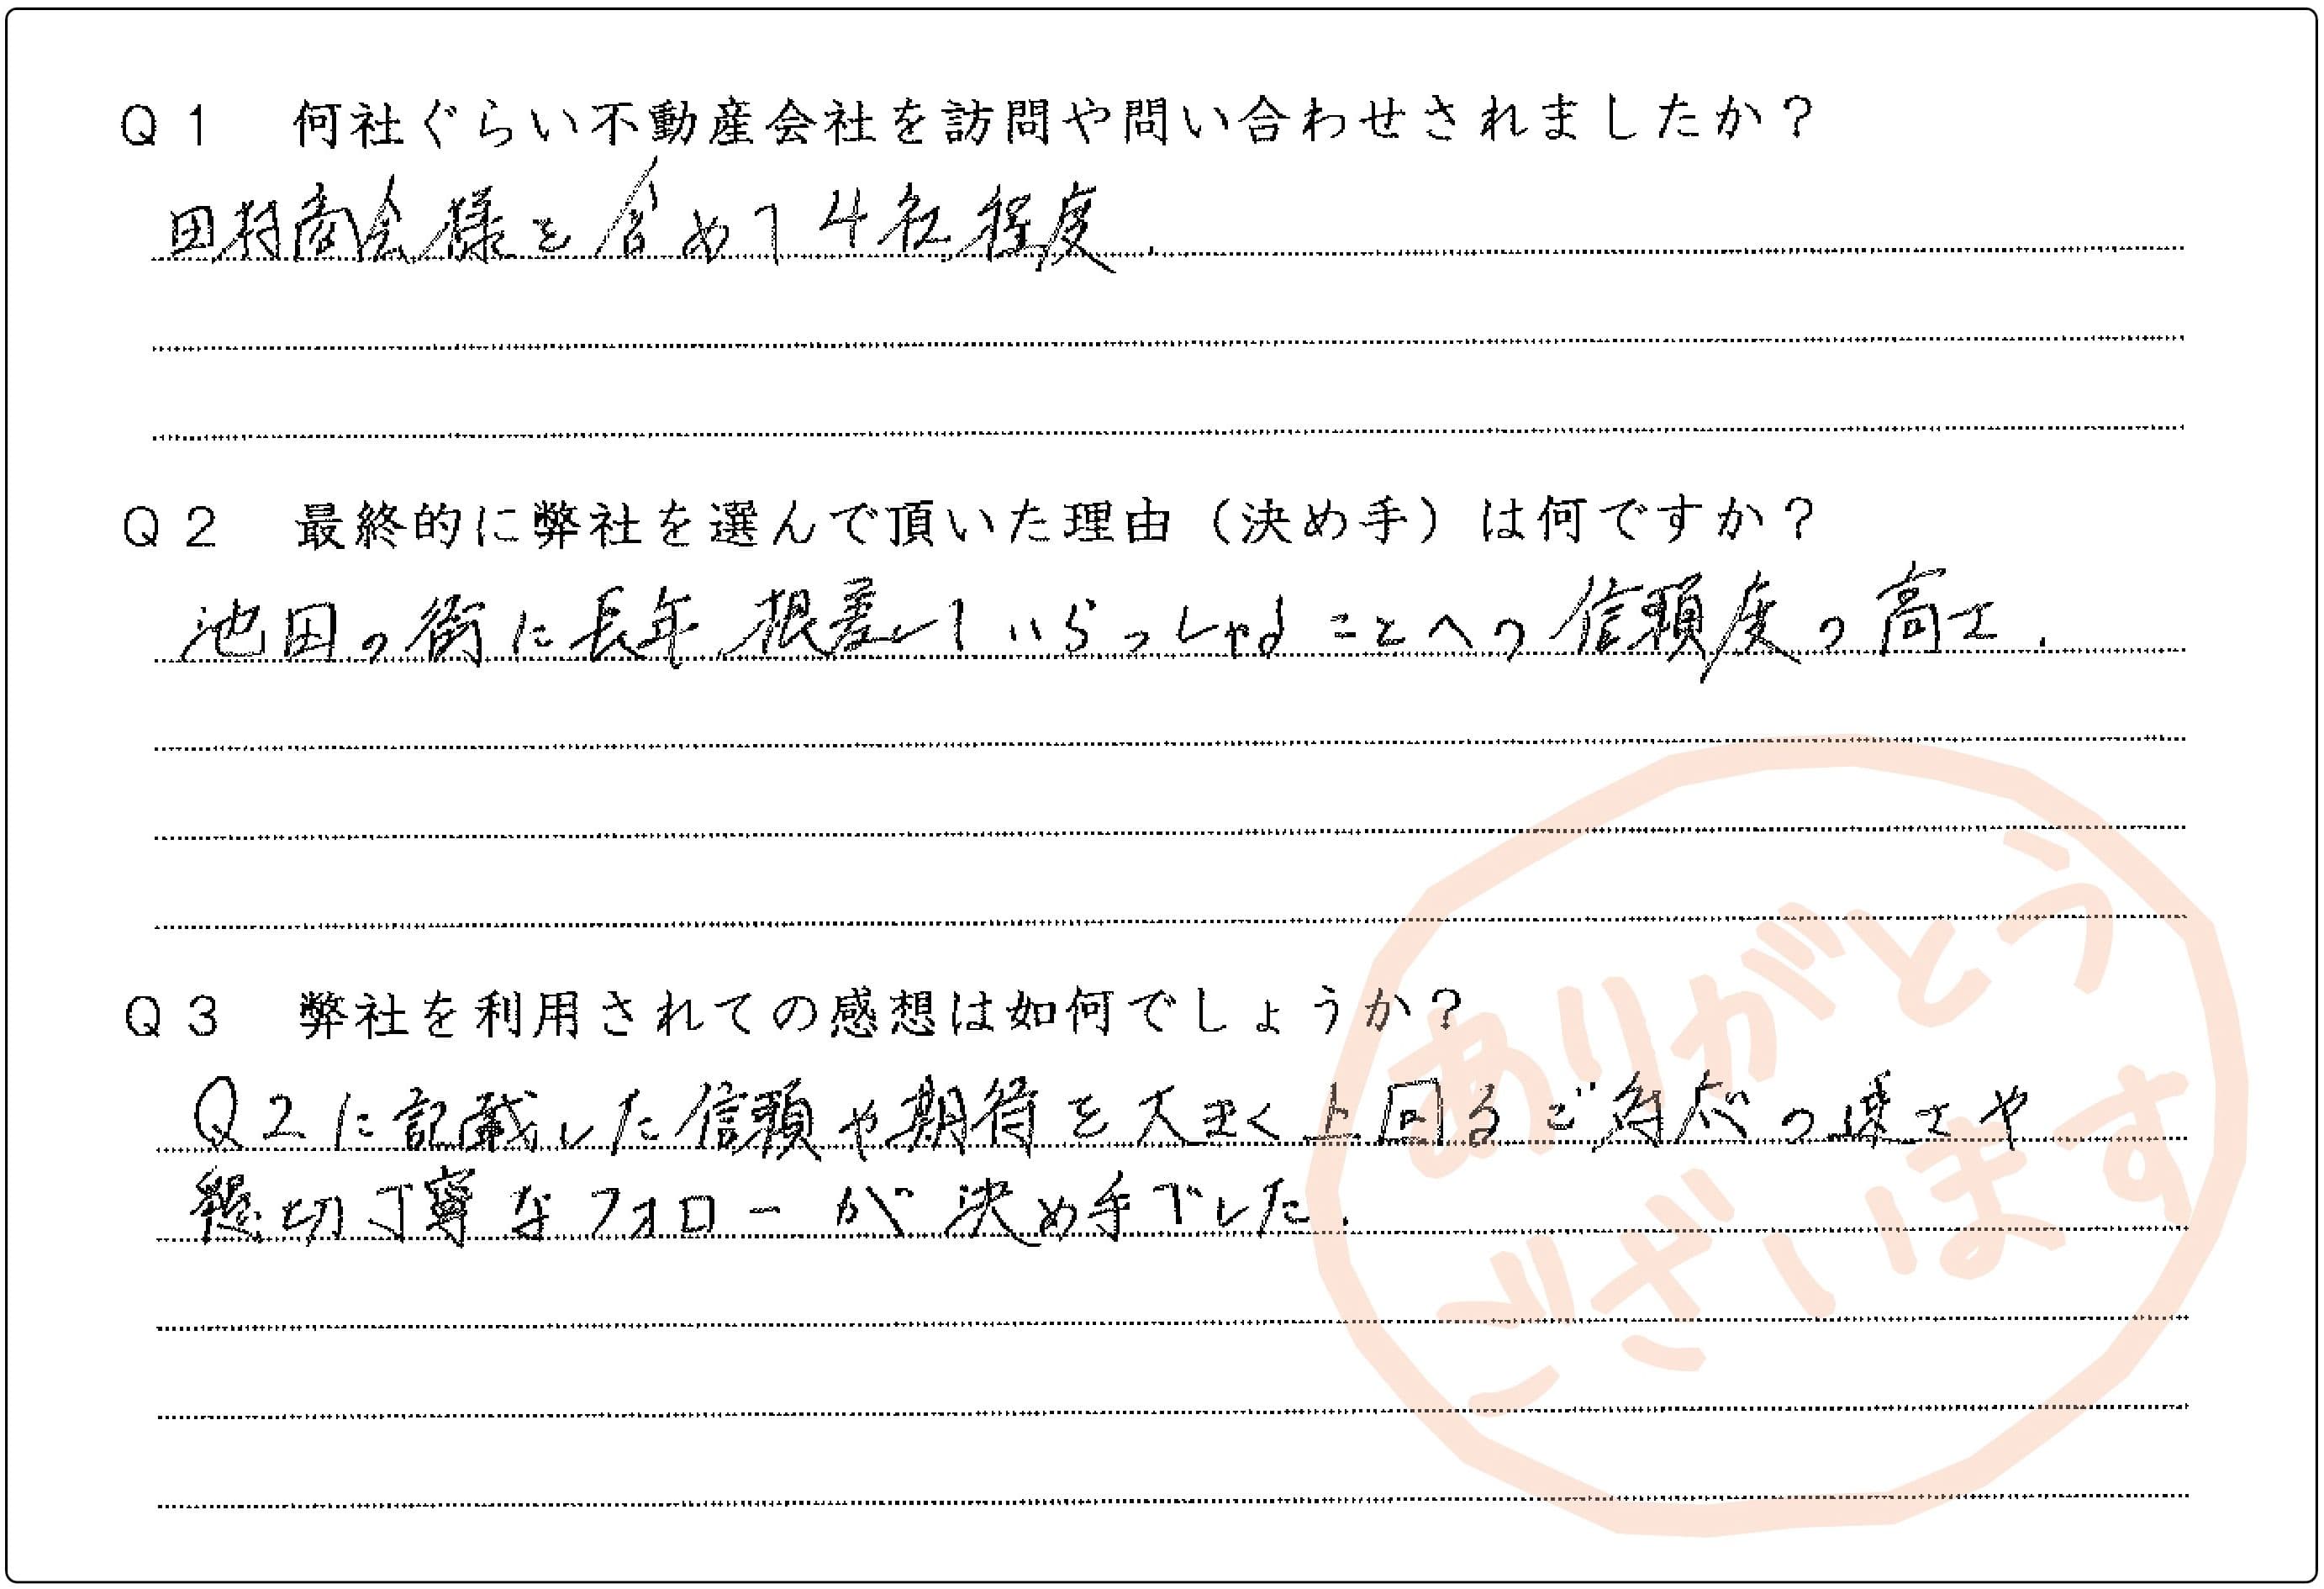 Q1 何社ぐらい不動産会社を訪問や問い合わせされましたか？
田村商会様を含めて4社程度.
Q2 最終的に弊社を選んで頂いた理由（決め手）は何ですか？
池田の街に長年根差していらっしゃることへの信頼度の高さ.
Q3 弊社を利用されての感想は如何でしょうか？
Q2に記載した信頼や期待を大きく上回るご対応の速さや
懇切丁寧なフォローが決め手でした.
ありがとう
ございます